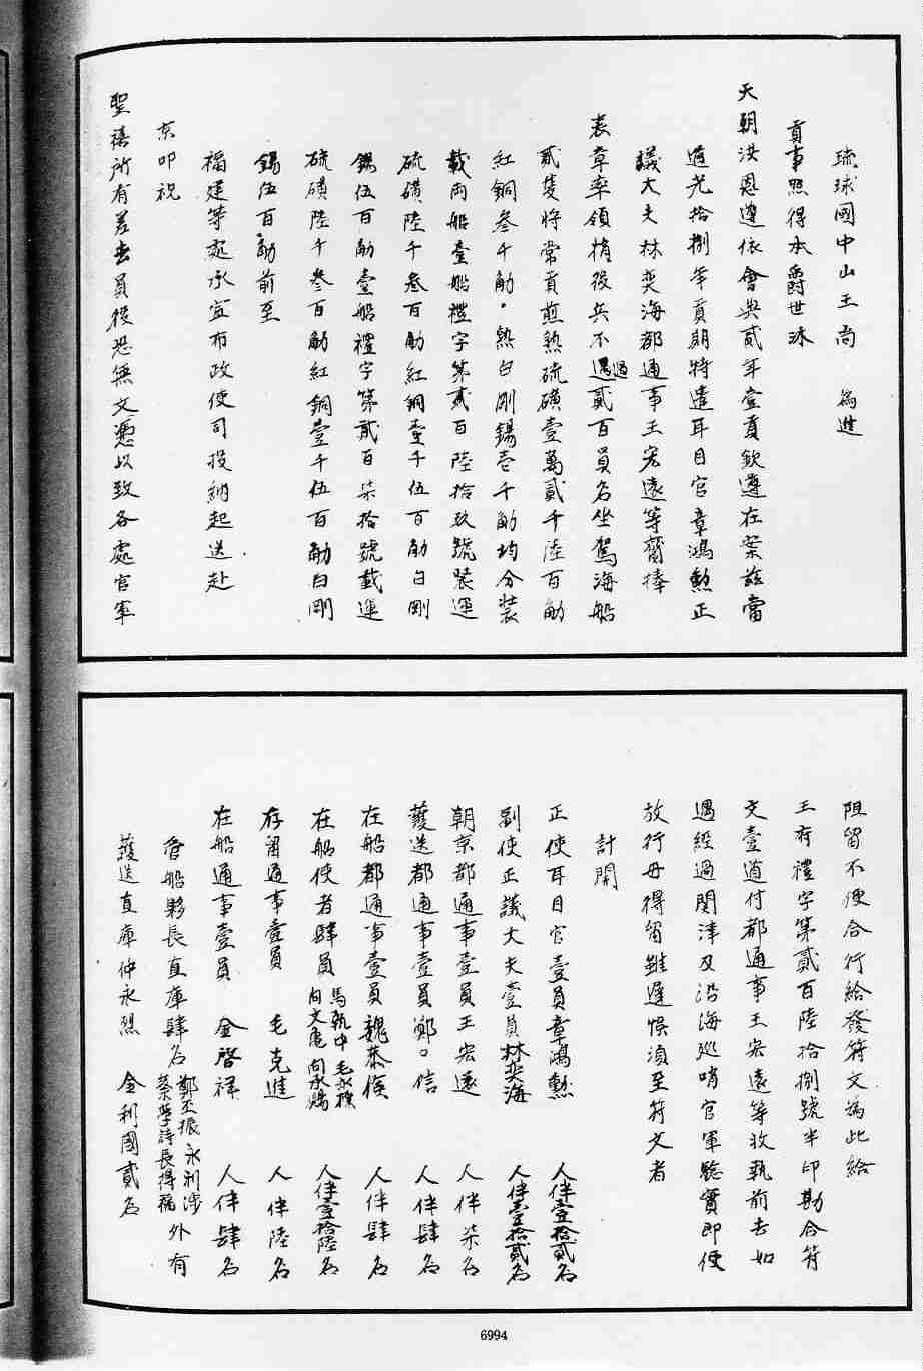 琉球國中山王尚　為進
貢事照得本爵世沐
天朝洪恩遵依會典貳年壹貢欽遵在案茲當
道光拾捌年貢期特遣耳目官章鴻勲正
議大夫林奕海都通事王宏遠等齎捧
表章率領梢役兵不過貳百員名坐駕海船
貳隻將常貢煎熟硫磺壹萬貳千陸百觔
紅銅叁千觔熟白剛錫壱千觔均分裝
載両船壹船禮字第貳百陸拾玖號裝運
硫磺陸千叁百觔紅銅壹千伍百觔白剛
錫伍百觔壹船禮字第貳百柒拾號載運
硫磺陸千叁百觔紅銅壹千伍百觔白剛
錫伍百觔前至
福建等處承宣布政使司投納起送赴
京叩祝
聖禧所有差去員役恐無文憑以致各處官軍
阻留不便合行給發符文為此給
王府禮字第貳百陸拾捌號半印勘合符
文壹道付都通事王宏遠等收執前去如
遇經過関津及沿海巡哨官軍驗實即便
放行毋得留難遲悞須至符文者
計開
正使耳目官壹員章鴻勲　人伴壹拾貳名
副使正議大夫壹員林奕海　人伴壹拾貳名
朝京都通事壹員王宏遠　人伴柒名
護送都通事壹員鄭○信　人伴肆名
在船都通事壹員魏恭儉　人伴肆名
在船使者肆員　馬執中　毛永機　向文亀　向永賜　人伴壹拾陸名
存留通事壹員　毛克進　人伴陸名
在船通事壹員　金啓祥　人伴肆名
管船夥長直庫肆名　鄭丕振　永利涉　蔡學詩　長得福　外有
護送直庫仲永烈　金利國貳名
6994